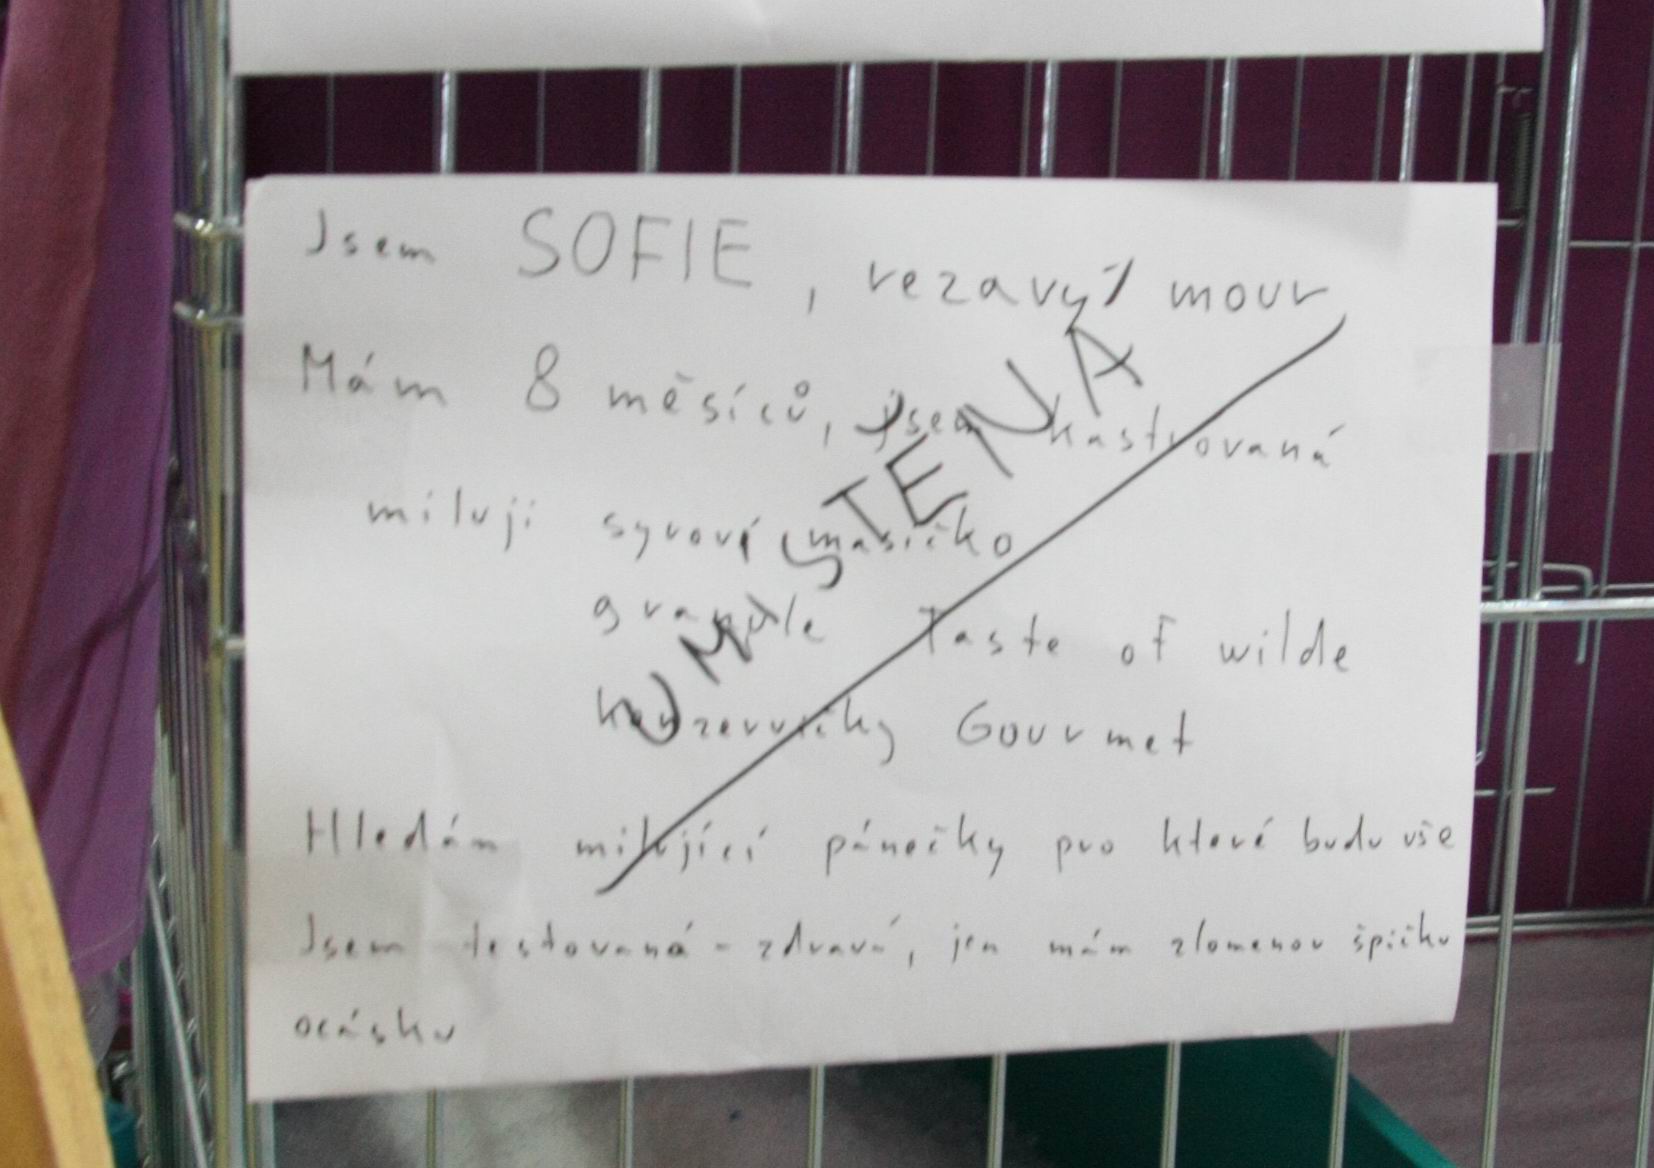 Jsem SOFIE, rezavý mour
Mám 8 měsíců, jsem kastrovaná
miluji syrové masíčko
granule Taste of wilde
konzervičky Gourmet
UMÍSTENA
Hledám milující páníčky pro které budu vše
Jsem testovaná - zdravá, jen mám zlomenou špičku
ocásku